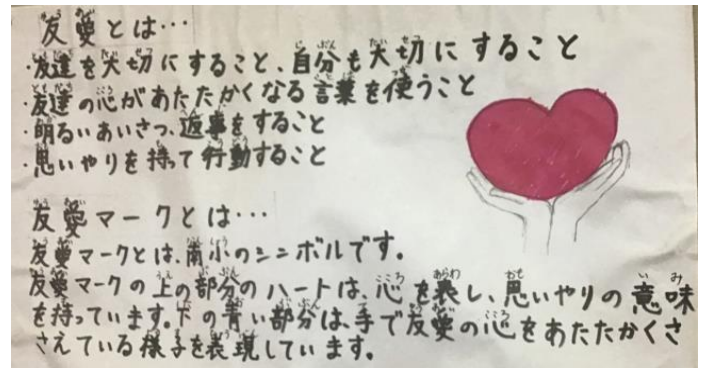 友愛とは…
・友達を大切にすること、自分も大切にすること
・友達の心があたたかくなる言葉を使うこと
・明るいあいさつ、返事をすること
・思いやりを持って行動すること
友愛マークとは…
友愛マークとは、南小のシンボルです。
友愛マークの上の部分のハートは、心を表し、思いやりの意味
を持っています。下の青い部分は、手で友愛の心をあたたかくさ
さえている様子を表現しています。